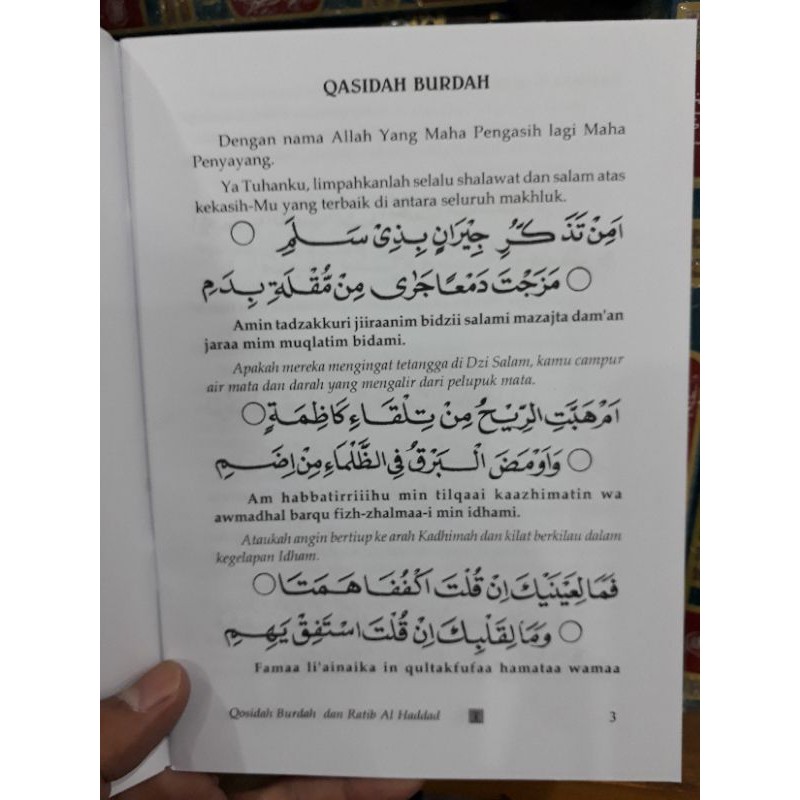 QASIDAH BURDAH
Dengan nama Allah Yang Maha Pengasih lagi Maha
Penyayang.
Ya Tuhanku, limpahkanlah selalu shalawat dan salam atas
kekasih-Mu yang terbaik di antara seluruh makhluk.
اَمِنْ تَذَكُّرِ جِيْرَانٍ بِذِيْ سَلَمِ ○
○ مَزَجْتَ دَمْعًا جَرٰى مِنْ مُّقْلَةٍ بِدَمِ
Amin tadzakkuri jiiraanim bidzii salami mazajta dam'an
jaraa mim muqlatim bidami.
Apakah mereka mengingat tetangga di Dzi Salam, kamu campur
air mata dan darah yang mengalir dari pelupuk mata.
اَمْ هَبَّتِ الرِّيْحُ مِنْ تِلْقَاءِ كَاظِمَةٍ ○
○ وَاَوْمَضَ الْبَرْقُ فِى الظَّلْمَاءِ مِنْ اِضَمِ
Am habbatirriiihu min tilqaai kaazhimatin wa
awmadhal barqu fizh-zhalmaa-i min idhami.
Ataukah angin bertiup ke arah Kadhimah dan kilat berkilau dalam
kegelapan Idham.
فَمَا لِعَيْنَيْكَ اِنْ قُلْتَ اكْفُفَا هَمَتَا ○
○ وَمَا لِقَلْبِكَ اِنْ قُلْتَ اسْتَفِقْ يَهِمِ
Famaa li'ainaika in qultakfufaa hamataa wamaa
Qosidah Burdah dan Ratib Al Haddad
3